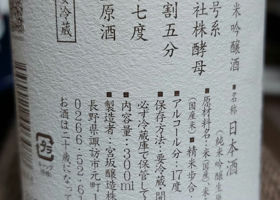 米吟醸酒
号系
社株酵母
割五分
七度
原酒
要冷蔵
■名称 日本酒
(純米吟醸生
■原材料名:米(国産)、米
(国産米) ■精米歩合:
■アルコール分:17度
■保存方法:要冷蔵、開
必ず冷蔵庫で保管して
■内容量:300ml
■製造者:宮坂醸造株
長野県諏訪市元町
0266-52-6
お酒は二十歳になっ
プラ